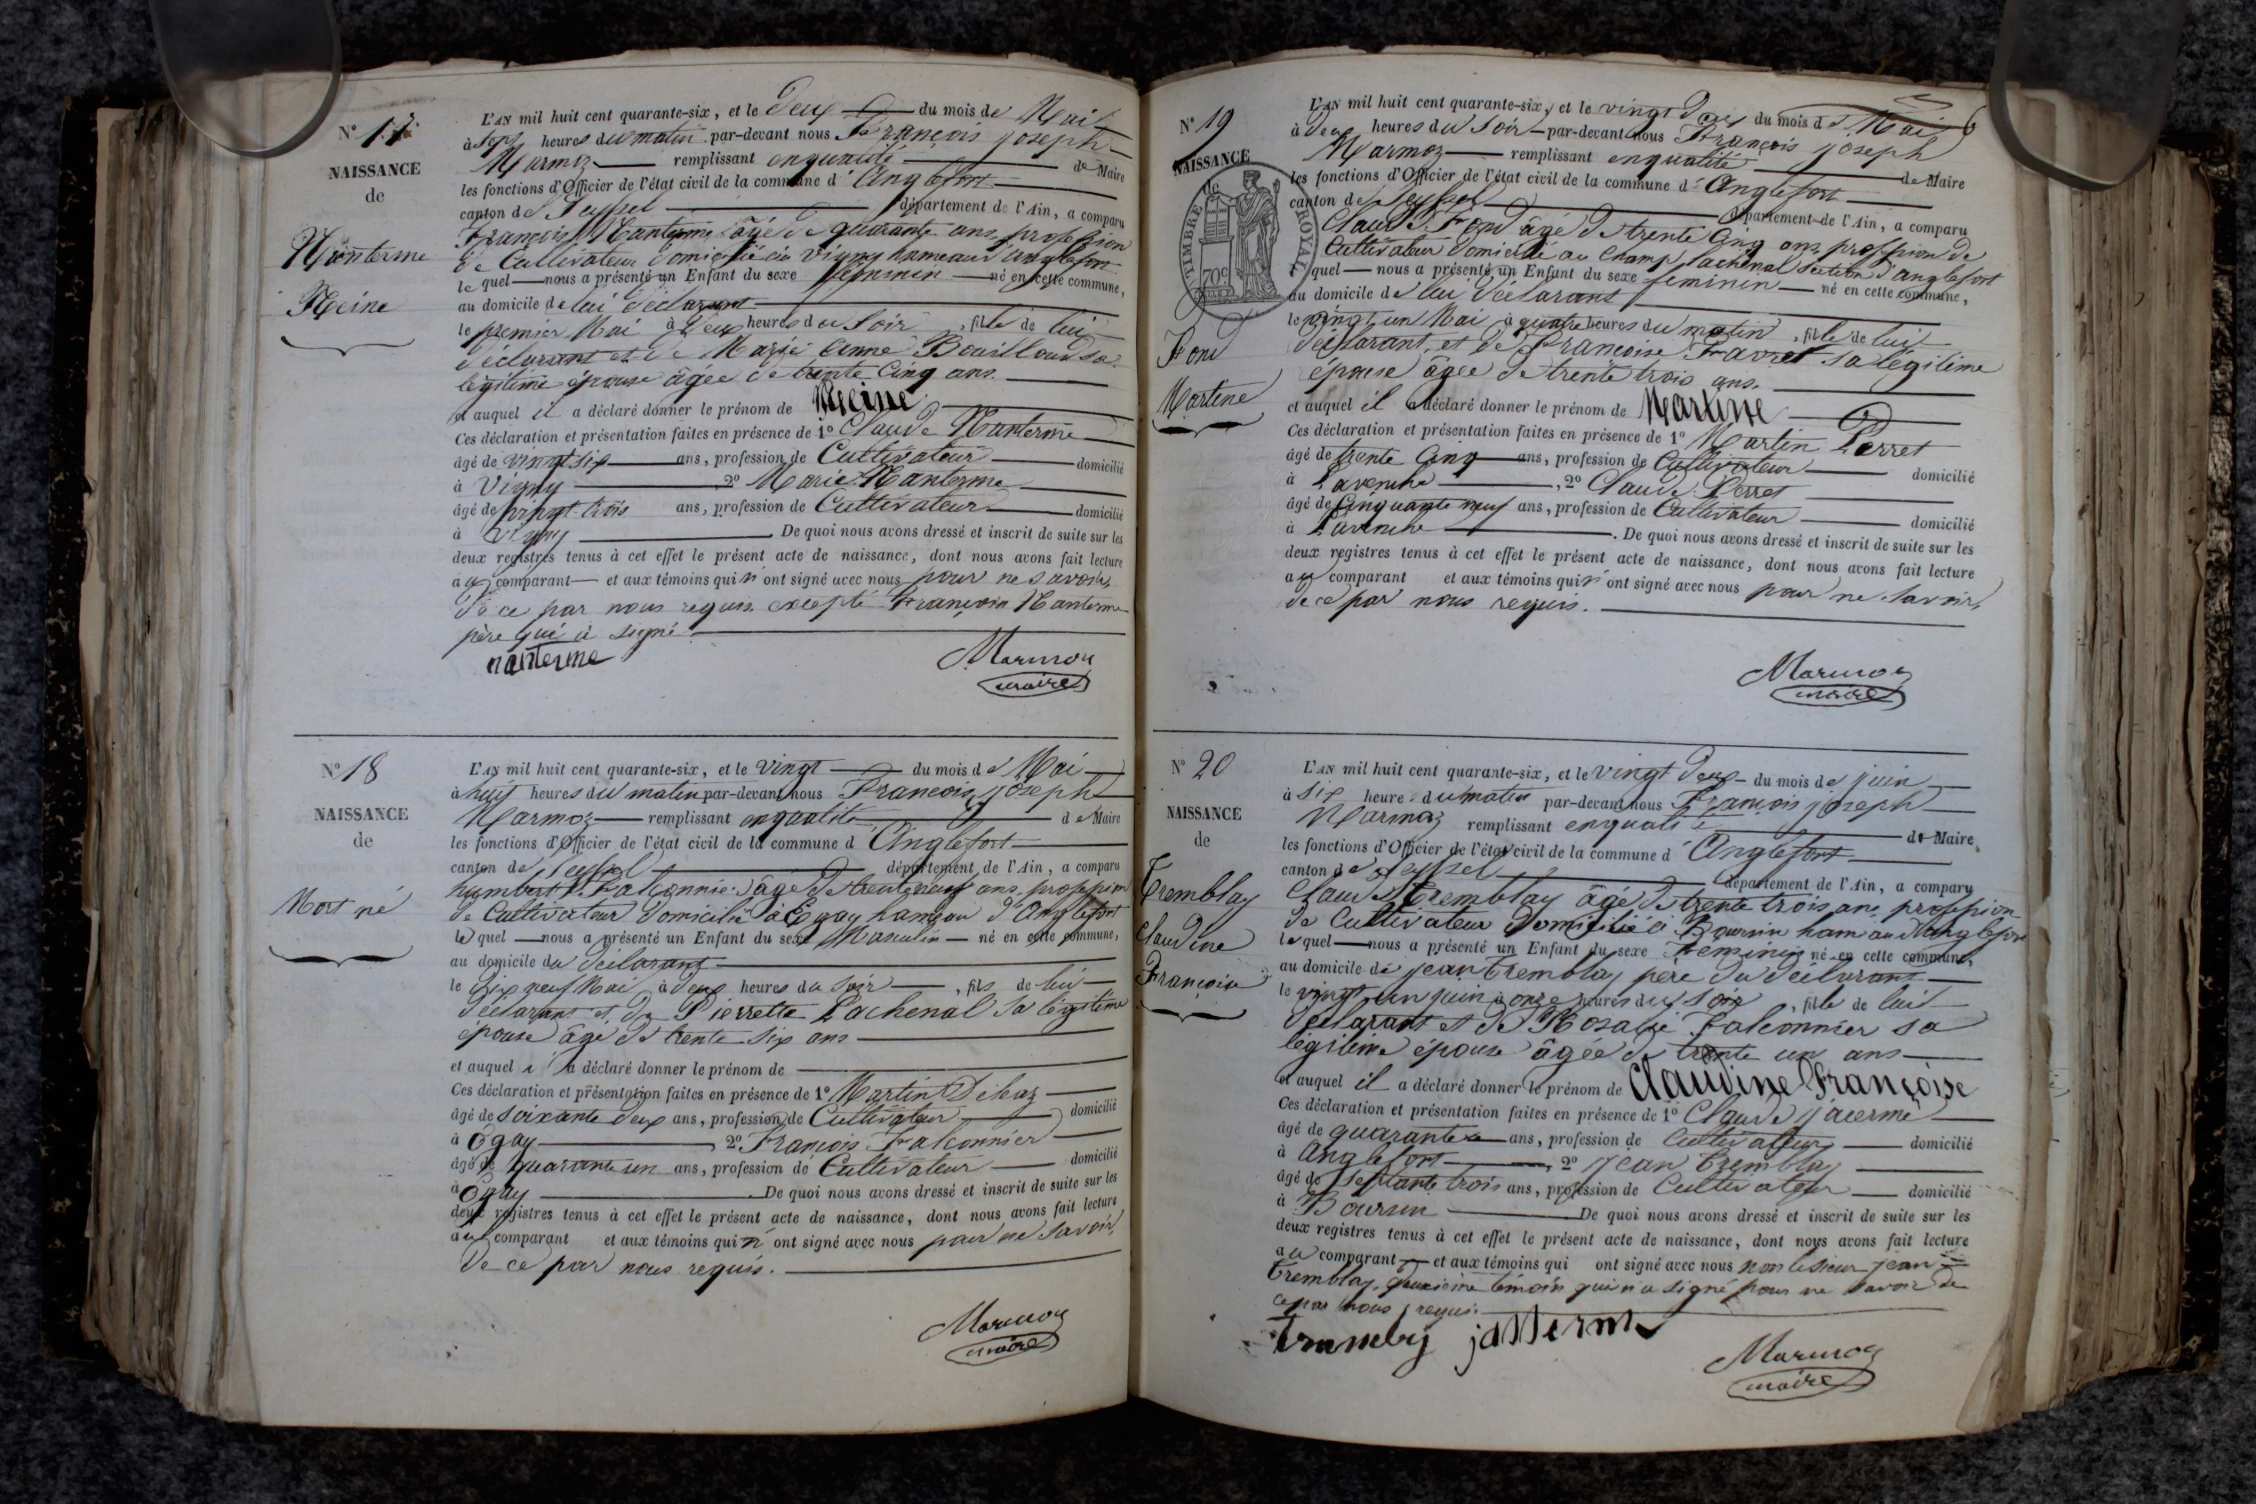 N.º 17
NAISSANCE
de
Nanterme
Reine
L'AN mil huit cent quarante-six, et le deux du mois de Mai
à sept heures du matin par-devant nous François joseph
Marmoz remplissant en qualité de Maire
les fonctions d'Officier de l'état civil de la commune d'Anglefort
canton de Seyssel département de l'Ain, a comparu
François Nanterme âgé de quarante ans profession
de Cultivateur domicilié à Vigny hameau d'anglefort
lequel nous a présenté un Enfant du sexe féminin né en cette commune,
au domicile de lui déclarant
le premier Mai à deux heures du Soir, fille de lui
déclarant et de Marie Anne Bouilloud sa
légitime épouse âgée de trente Cinq ans.
et auquel il a déclaré donner le prénom de Reine
Ces déclaration et présentation faites en présence de 1º Claude Nanterme
âgé de vingt six ans, profession de Cultivateur domicilié
à Vigny, 2º Marie Nanterme
âgé de vingt trois ans, profession de Cultivateur domicilié
à Vigny. De quoi nous avons dressé et inscrit de suite sur les
deux registres tenus à cet effet le présent acte de naissance, dont nous avons fait lecture
au comparant et aux témoins qui n'ont signé avec nous pour ne savoir,
de ce par nous requis excepté François Nanterme
père qui a signé.
nanterme Marmoz
maire
N.º 18
NAISSANCE
de
Mort né
L'AN mil huit cent quarante-six, et le vingt du mois de Mai
à huit heures du matin par-devant nous François joseph
Marmoz remplissant en qualité de Maire
les fonctions d'Officier de l'état civil de la commune d'Anglefort
canton de Seyssel département de l'Ain, a comparu
humbert falconnier âgé de trente neuf ans profession
de Cultivateur domicilié à Ogay hameau d'Anglefort
lequel nous a présenté un Enfant du sexe Masculin né en cette commune,
au domicile du déclarant
le dix neuf Mai à deux heures du soir, fils de lui
déclarant et de Pierrette Lachenal sa légitime
épouse âgé de trente six ans
et auquel i a déclaré donner le prénom de
Ces déclaration et présentation faites en présence de 1º Martin
âgé de soixante deux ans, profession de Cultivateur domicilié
à Ogay, 2º François Falconnier
âgé de quarante un ans, profession de Cultivateur domicilié
à Ogay. De quoi nous avons dressé et inscrit de suite sur les
deux registres tenus à cet effet le présent acte de naissance, dont nous avons fait lecture
au comparant et aux témoins qui n'ont signé avec nous pour ne savoir,
de ce par nous requis.
Marmoz
maire
N.º 19
NAISSANCE
de
TIMBRE ROYAL
70c
Fond
Martine
L'AN mil huit cent quarante-six, et le vingt deux du mois de Mai
à deux heures du Soir par-devant nous François joseph
Marmoz remplissant en qualité de Maire
les fonctions d'Officier de l'état civil de la commune d'Anglefort
canton de Seyssel département de l'Ain, a comparu
Claude Fond âgé de trente Cinq ans profession de
Cultivateur domicilié au Champ lachenal section d'anglefort
lequel nous a présenté un Enfant du sexe féminin né en cette commune,
au domicile de lui déclarant
le vingt un Mai à quatre heures du matin, fille de lui
déclarant et de Françoise Favret sa légitime
épouse âgée de trente trois ans.
et auquel il a déclaré donner le prénom de Martine
Ces déclaration et présentation faites en présence de 1º Martin Perret
âgé de trente Cinq ans, profession de Cultivateur domicilié
à Lavenche, 2º Claude Perret
âgé de Cinquante neuf ans, profession de Cultivateur domicilié
à Lavenche. De quoi nous avons dressé et inscrit de suite sur les
deux registres tenus à cet effet le présent acte de naissance, dont nous avons fait lecture
au comparant et aux témoins qui n'ont signé avec nous pour ne savoir,
de ce par nous requis.
Marmoz
maire
N.º 20
NAISSANCE
de
Tremblay
Claudine
Françoise
L'AN mil huit cent quarante-six, et le vingt deux du mois de juin
à six heure du matin par-devant nous François joseph
Marmoz remplissant en qualité de Maire
les fonctions d'Officier de l'état civil de la commune d'Anglefort
canton de Seyssel département de l'Ain, a comparu
Claude Tremblay âgé de trente trois ans profession
de Cultivateur domicilié à Boursin hameau d'anglefort
lequel nous a présenté un Enfant du sexe Féminin né en cette commune,
au domicile de jean Tremblay père du déclarant
le vingt un juin à onze heures du soir, fille de lui
déclarant et de Rosalie Falconnier sa
légitime épouse âgée de trente un ans
et auquel il a déclaré donner le prénom de Claudine Françoise
Ces déclaration et présentation faites en présence de 1º Claude jacerme
âgé de quarante ans, profession de Cultivateur domicilié
à Anglefort, 2º jean Tremblay
âgé de septante trois ans, profession de Cultivateur domicilié
à Boursin De quoi nous avons dressé et inscrit de suite sur les
deux registres tenus à cet effet le présent acte de naissance, dont nous avons fait lecture
au comparant et aux témoins qui ont signé avec nous non le sieur jean
Tremblay, deuxième témoin qui n'a signé pour ne savoir de
ce par nous requis.
Marmoz
maire